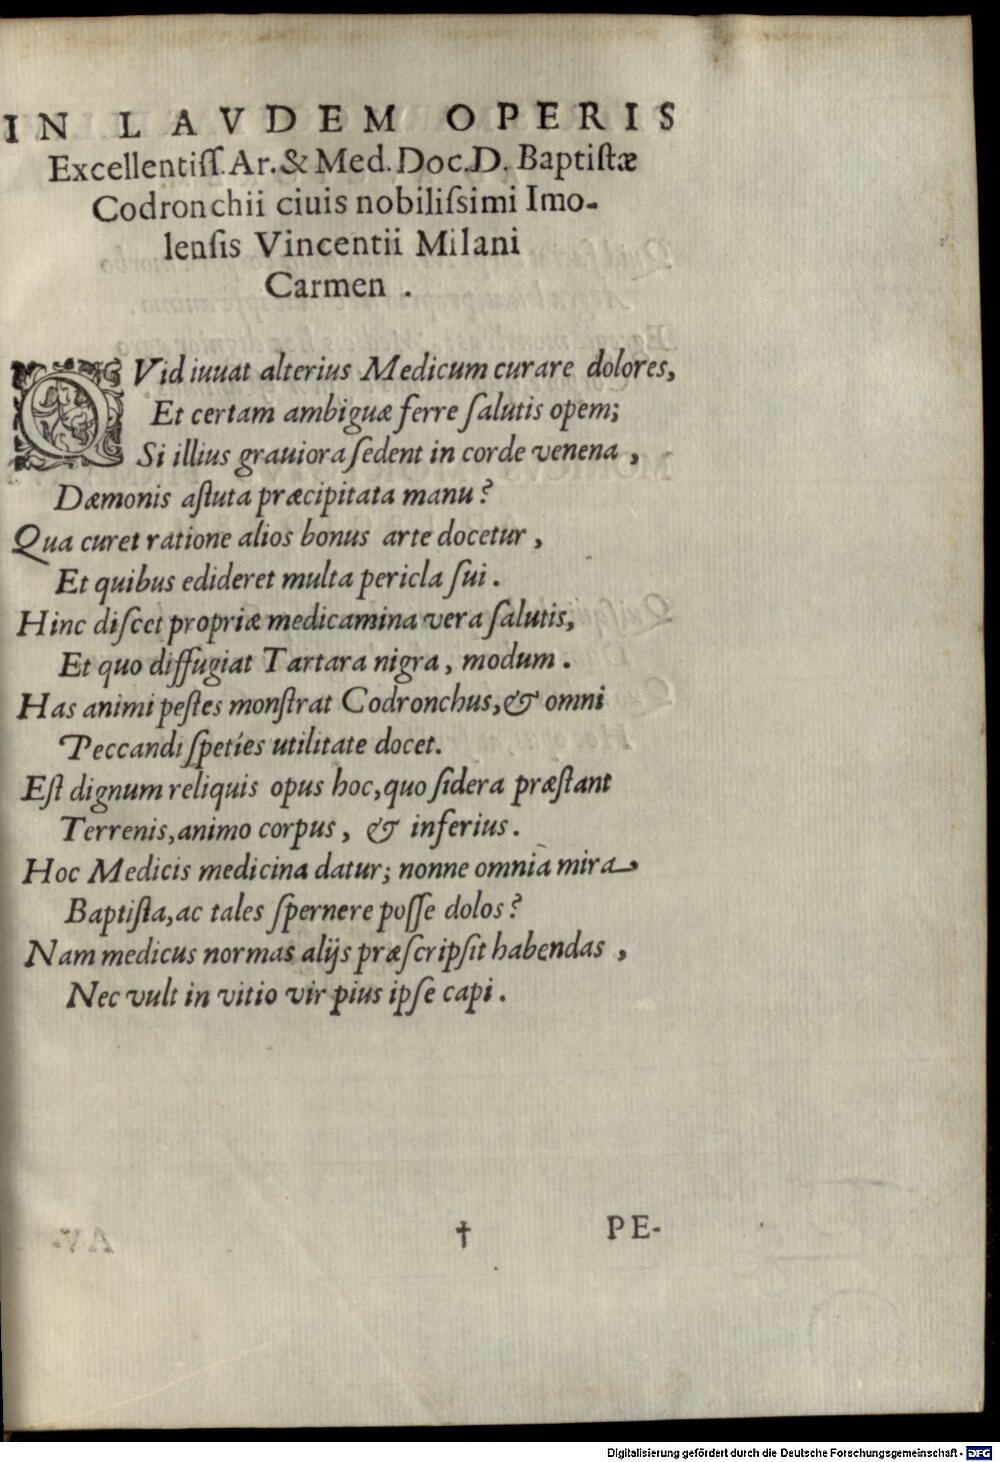 IN LAVDEM OPERIS
Excellentiſſ. Ar. & Med. Doc. D. Baptiſtæ
Codronchii ciuis nobiliſsimi Imo-
lenſis Vincentii Milani
Carmen .
QVid iuuat alterius Medicum curare dolores,
Et certam ambiguæ ferre ſalutis opem;
Si illius grauiora ſedent in corde venena ,
Dæmonis aſtuta præcipitata manu?
Qua curet ratione alios bonus arte docetur ,
Et quibus edideret multa pericla ſui .
Hinc diſcet propriæ medicamina vera ſalutis,
Et quo diffugiat Tartara nigra , modum .
Has animi peſtes monſtrat Codronchus, & omni
Peccandi ſpeties utilitate docet.
Eſt dignum reliquis opus hoc, quo ſidera præſtant
Terrenis, animo corpus , & inferius .
Hoc Medicis medicina datur; nonne omnia mira
Baptiſta, ac tales ſpernere poſſe dolos?
Nam medicus normas alijs præſcripſit habendas ,
Nec vult in vitio vir pius ipſe capi .
† PE-
Digitalisierung gefördert durch die Deutsche Forschungsgemeinschaft - DFG